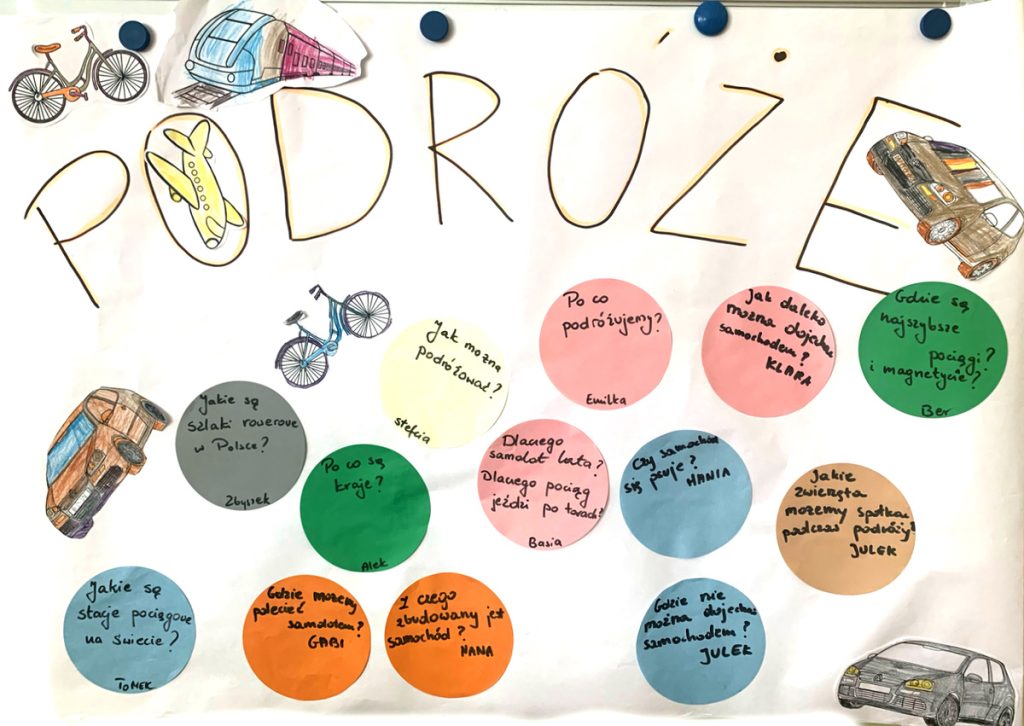 PODRÓŻE
Po co
podróżujemy?
Emilka
Jak daleko
można dojechać
samochodem?
KLARA
Gdzie są
najszybsze
pociągi?
i magnetycie?
Ber
Jak można
podróżować?
stefcia
Jakie są
szlaki rowerowe
w Polsce?
Zbyszek
Po co są
kraje?
Alek
Dlaczego
samolot lata?
Dlaczego pociąg
jeździ po torach?
Basia
Czy samochód
się psuje?
HANIA
Jakie
zwierzęta
możemy spotkać
podczas podróży?
JULEK
Jakie są
stacje pociągowe
na świecie?
TOMEK
Gdzie możemy
polecieć
samolotem?
GABI
Z czego
zbudowany jest
samochód?
NANA
Gdzie nie
można dojechać
samochodem?
JULEK